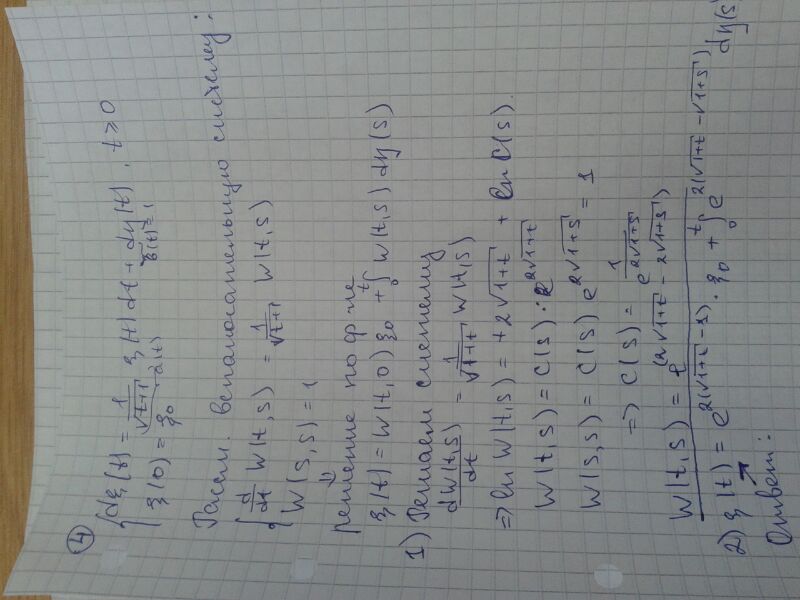 ④ { dξ(t) = 1/√(t+1) ξ(t)dt + dη(t), t ≥ 0
a(t) b(t) = 1
ξ(0) = ξ₀
Рассм. вспомогательную систему:
{ d/dt W(t,s) = 1/√(t+1) W(t,s)
W(s,s) = 1
⇓
решение по ф-ле
ξ(t) = W(t,0) ξ₀ + ∫₀ᵗ W(t,s) dη(s)
1) Решаем систему
dW(t,s)/dt = 1/√(1+t) W(t,s)
⇒ ln W(t,s) = +2√(1+t) + ln C(s).
W(t,s) = C(s)·e^(2√(1+t))
W(s,s) = C(s) e^(2√(1+s)) = 1
⇒ C(s) = 1/e^(2√(1+s))
W(t,s) = e^(2√(1+t) - 2√(1+s))
2) ξ(t) = e^(2(√(1+t) - 1))·ξ₀ + ∫₀ᵗ e^(2(√(1+t) - √(1+s))) dη(s)
Ответ: